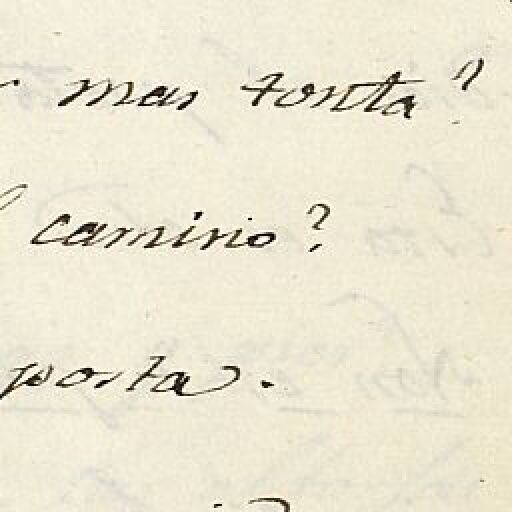 mas tonta?
camino?
posta.